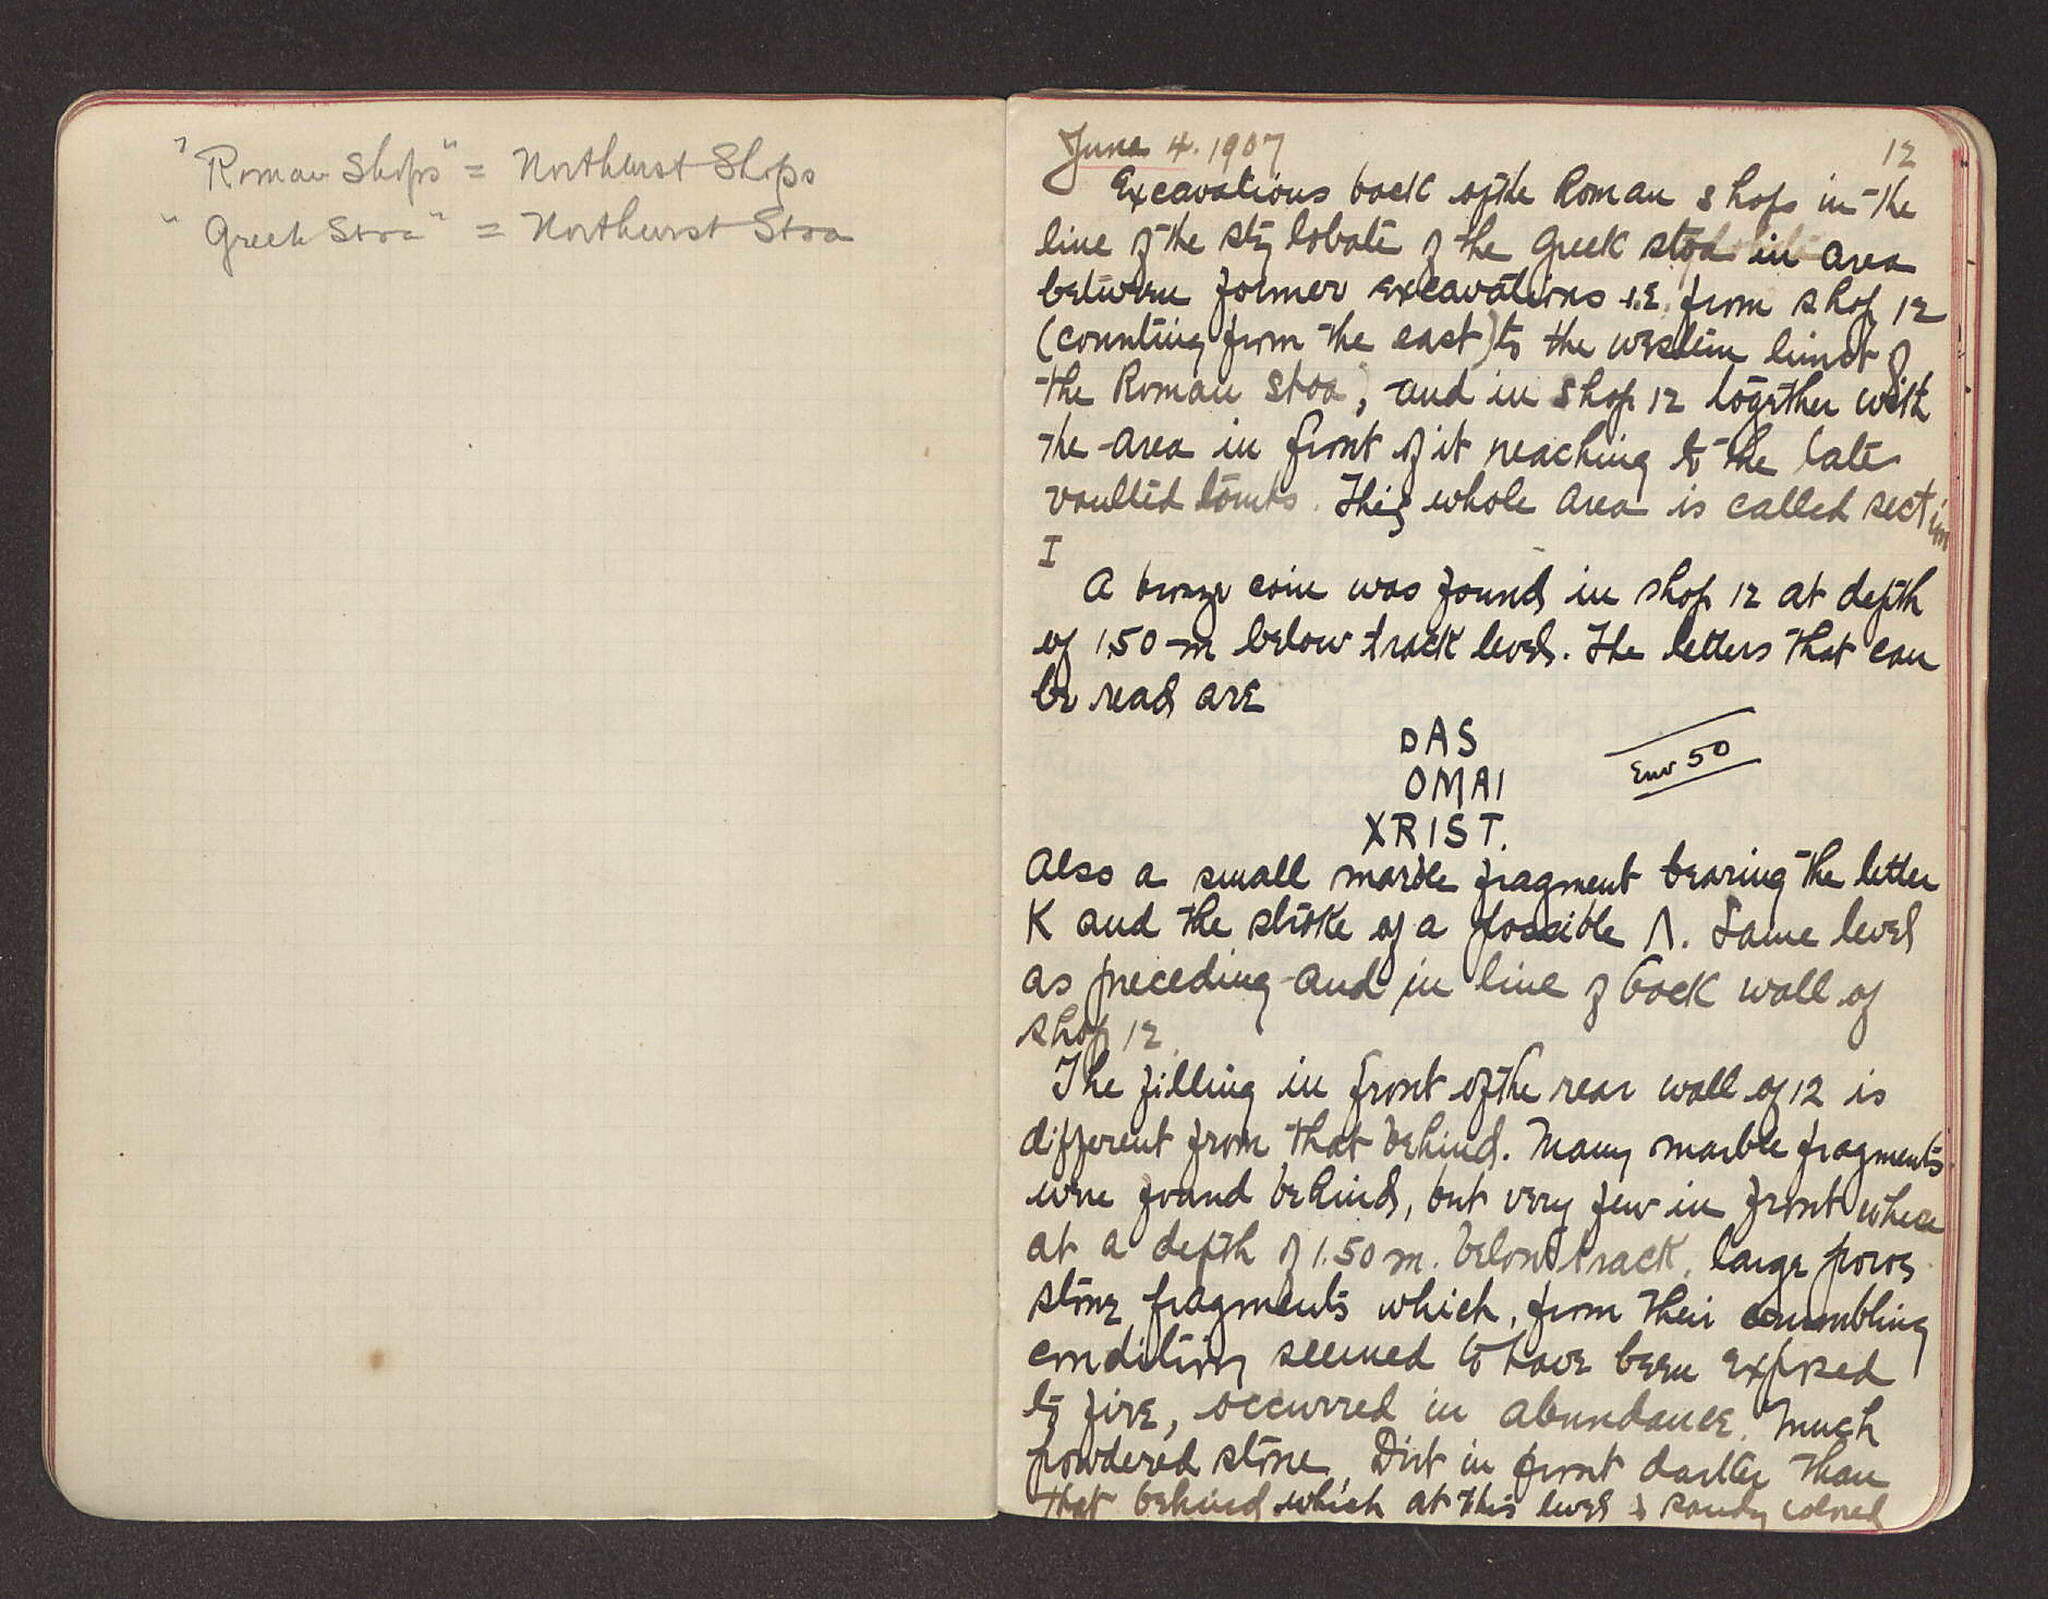 "Roman Shops" = Northwest Shops
"Greek Stoa" = Northwest Stoa
June 4. 1907
12
Excavations back of the Roman shops in the
line of the stylobate of the Greek stoa in area
between former excavations i.e. from shop 12
(counting from the east) to the western limit of
the Roman Stoa, and in shop 12 together with
the area in front of it reaching to the late
vaulted tombs. This whole area is called section
I
A bronze coin was found in shop 12 at depth
of 1.50 m below track level. The letters that can
be read are
DAS
OMAI
XRIST.
Env 50
Also a small marble fragment bearing the letter
K and the stroke of a possible Λ. Same level
as preceding and in line of back wall of
shop 12.
The filling in front of the rear wall of 12 is
different from that behind. Many marble fragments
were found behind, but very few in front where
at a depth of 1.50 m. below track, large poros
stone fragments which, from their crumbling
condition seemed to have been exposed
to fire, occurred in abundance. Much
powdered stone. Dirt in front darker than
that behind which at this level is sandy colored